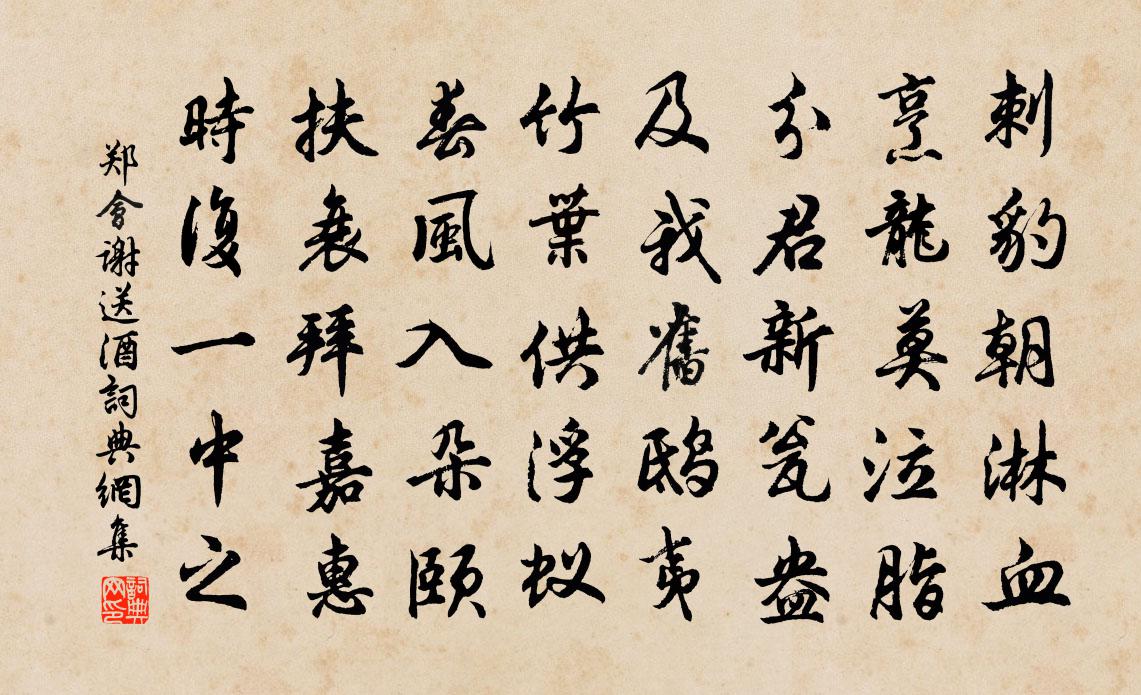 刺豹朝淋血
烹龍莫泣脂
分君新瓮盎
及我舊鴟夷
竹葉供浮蚁
春風入朵頤
扶衰拜嘉惠
時復一中之
郑會謝送酒詞典網集
詞典网印